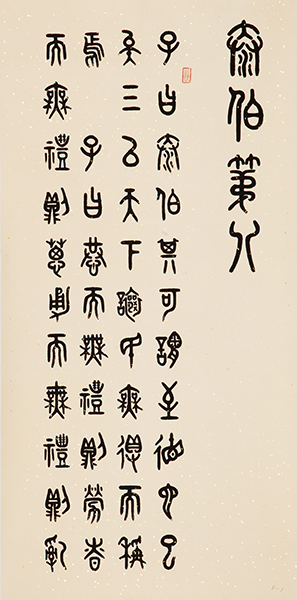 泰伯第八
子曰泰伯其可謂至德也已
矣三以天下讓民無得而稱
焉 子曰恭而無禮則勞昚
而無禮則葸勇而無禮則亂